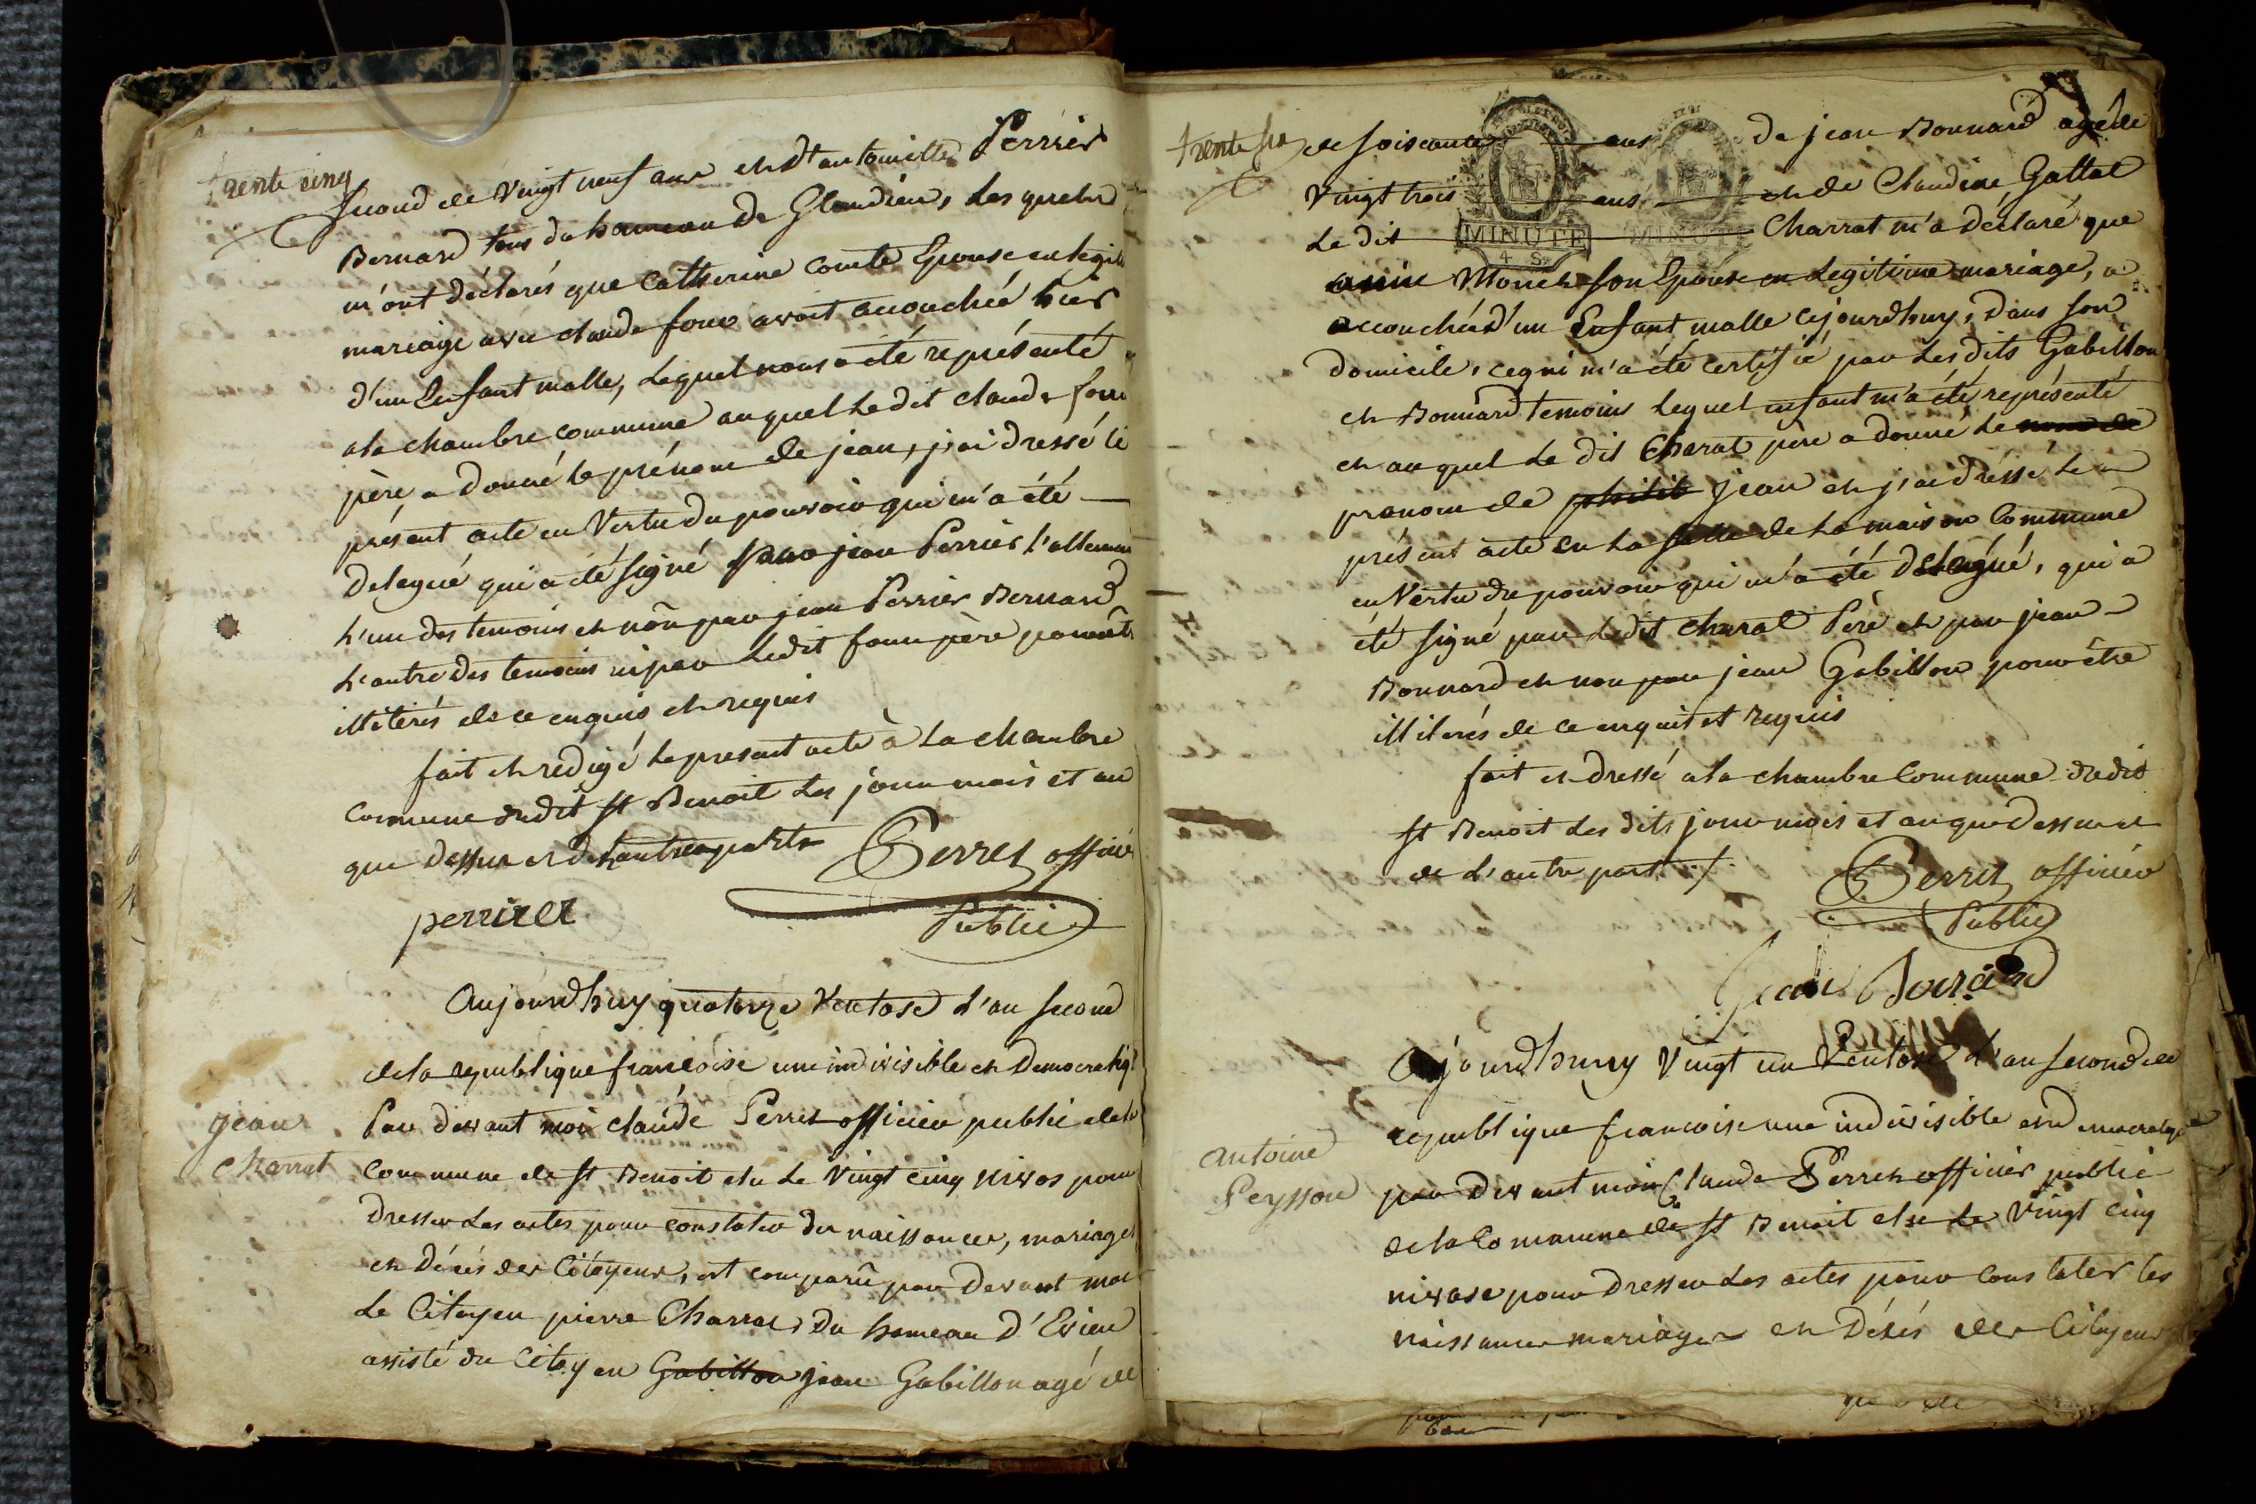 trente cinq
second de vingt neuf ans et d'antoinette Perrier
Bernard tous du hameau de Glandieu, les quels
m'ont déclarés que Catherine Comte Epouse en legit
mariage avec claude foux avoit accouchée hier
d'un Enfant malle, lequel nous a été représenté
a la chambre commune auquel le dit claude foux
père, a donné le prénom de jean, j'ai dressé le
présent acte en Vertu du pouvoir qui m'a été
delegué qui a été signé par jean Perrier l'allemand
l'un des temoins et non par jean Perrier Bernard
l'autre des temoins ni par ledit foux père pour être
illiterés de ce enquis et requis
fait et redigé le present acte à la chambre
commune dudit st Benoit les jour mois et an
que dessus et des autres parts Perret officier
perrier Public
Aujourdhuy quatorze Ventose l'an second
de la republique francoise une indivisible et Democratiq
jean
charrat
Par devant moi claude Perret officier public de la
Commune de st Benoit elu le Vingt cinq nivos pour
dresser les actes pour constater des naissances, mariages
et Décès des Citoyens, est comparu par devant moi
le Citoyen pierre Charrat, du hameau d'Evieu
assisté du Citoyen Gabillon jean Gabillon agé de
trente six
de soixante ans de jean Bonnard agé de
Vingt trois ans et de Claudine Gattal
MINUTE
4 S.
Le dit Charrat m'a déclaré que
son Epouse en Legitime mariage, a
accouchée d'un Enfant malle cejourdhuy, dans son
domicile, ce qui m'a été certifié par les dits Gabillon
et Bonnard temoins lequel enfant m'a été représenté
et auquel le dit Charat père a donné le nom de
pranom de philib jean et j'ai dressé le
présent acte en la salle de la maison Commune
en Vertu du pouvoir qui m'a été delegué, qui a
été signé par ledit charat Père et par jean
Bonnard et non par jean Gabillon pour être
illiterés de ce enquit et requis
fait et dressé a la chambre Commune dudit
st Benoit les dits jour mois et an que dessus et
de l'autre part ./. Perret officier
Public
jean Bonard
Aujourdhuy Vingt un Ventose l'an second de
republique francoise une indivisible et democratique
Antoine
Peysson
par devant moi Claude Perret officier public
de la Commune de st Benoit elu le Vingt cinq
nivose pour dresser les actes pour constater les
naissances mariages et Décès des Citoyens